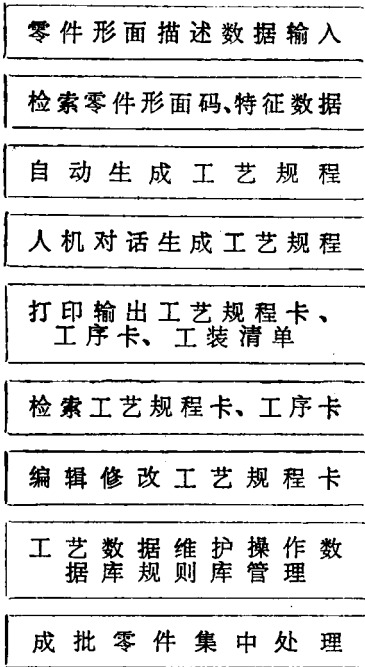 零件形面描述数据输入
检索零件形面码、特征数据
自动生成工艺规程
人机对话生成工艺规程
打印输出工艺规程卡、
工序卡、工装清单
检索工艺规程卡、工序卡
编辑修改工艺规程卡
工艺数据维护操作数
据库规则库管理
成批零件集中处理